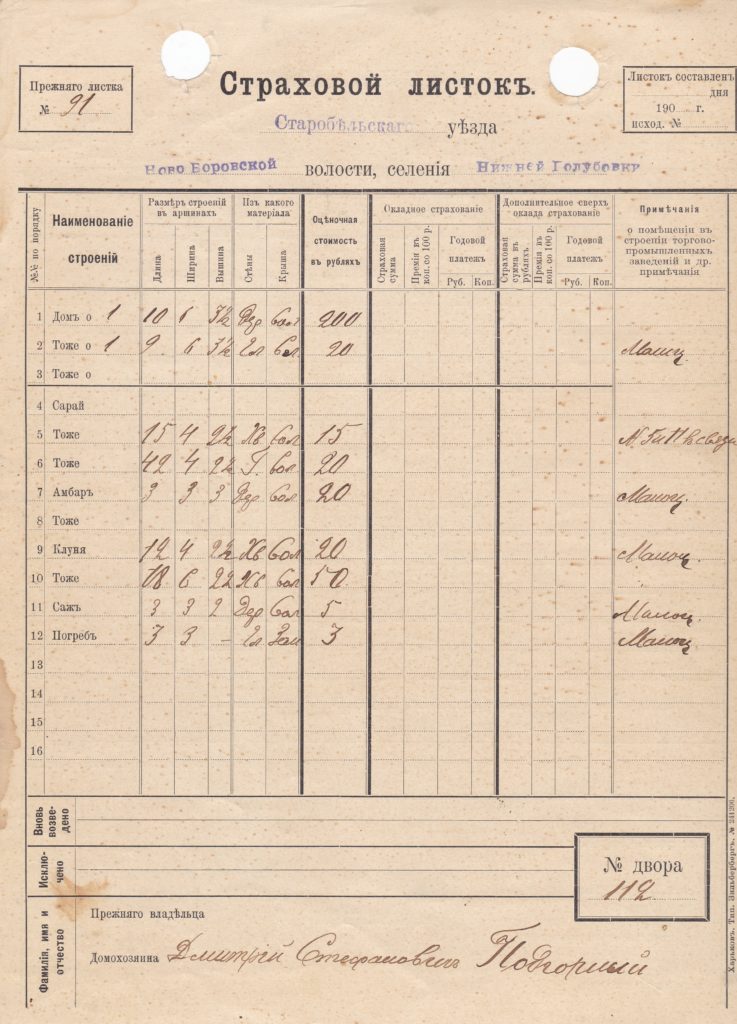 Страховой листокъ.
Прежняго листка
№ 91
Листокъ составленъ
дня
190 г.
исход. №
Старобѣльскаго уѣзда
Ново Боровской волости, селенія Нижней Голубовки
№№ по порядку
Наименованіе строеній
Размѣръ строеній въ аршинахъ
Длина
Ширина
Вышина
Изъ какого матеріала?
Стѣны
Крыша
Оцѣночная стоимость въ рубляхъ
Окладное страхованіе
Страховая сумма
Премія въ коп. со 100 р.
Годовой платежъ
Руб. Коп.
Дополнительное сверхъ оклада страхованіе
Страховая сумма въ рубляхъ
Премія въ коп. со 100 р.
Годовой платежъ
Руб. Коп.
Примѣчанія
о помѣщеніи въ строеніи торгово-промышленныхъ заведеній и др. примѣчанія
1 Домъ о 1 10 6 3½ Дер Сол 200
2 Тоже о 1 9 6 3½ Гл Сол 20
3 Тоже о
4 Сарай
5 Тоже 15 4 2½ Хв Сол 15
6 Тоже 42 4 2½ Г. Сол 20
7 Амбаръ 3 3 3 Дер Сол 20
8 Тоже
9 Клуня 12 4 2½ Хв Сол 20
10 Тоже 18 6 2½ Хв Сол 50
11 Сажъ 3 3 2 Дер Сол 5
12 Погребъ 3 3 – Гл Зем 3
13
14
15
16
Вновь возведено
Исключено
№ двора
112
Фамилія, имя и отчество
Прежняго владѣльца
Домохозяина Дмитрій Стефановичъ Подгорный
Харьковъ. Тип. Зильбербергъ. № 241206.